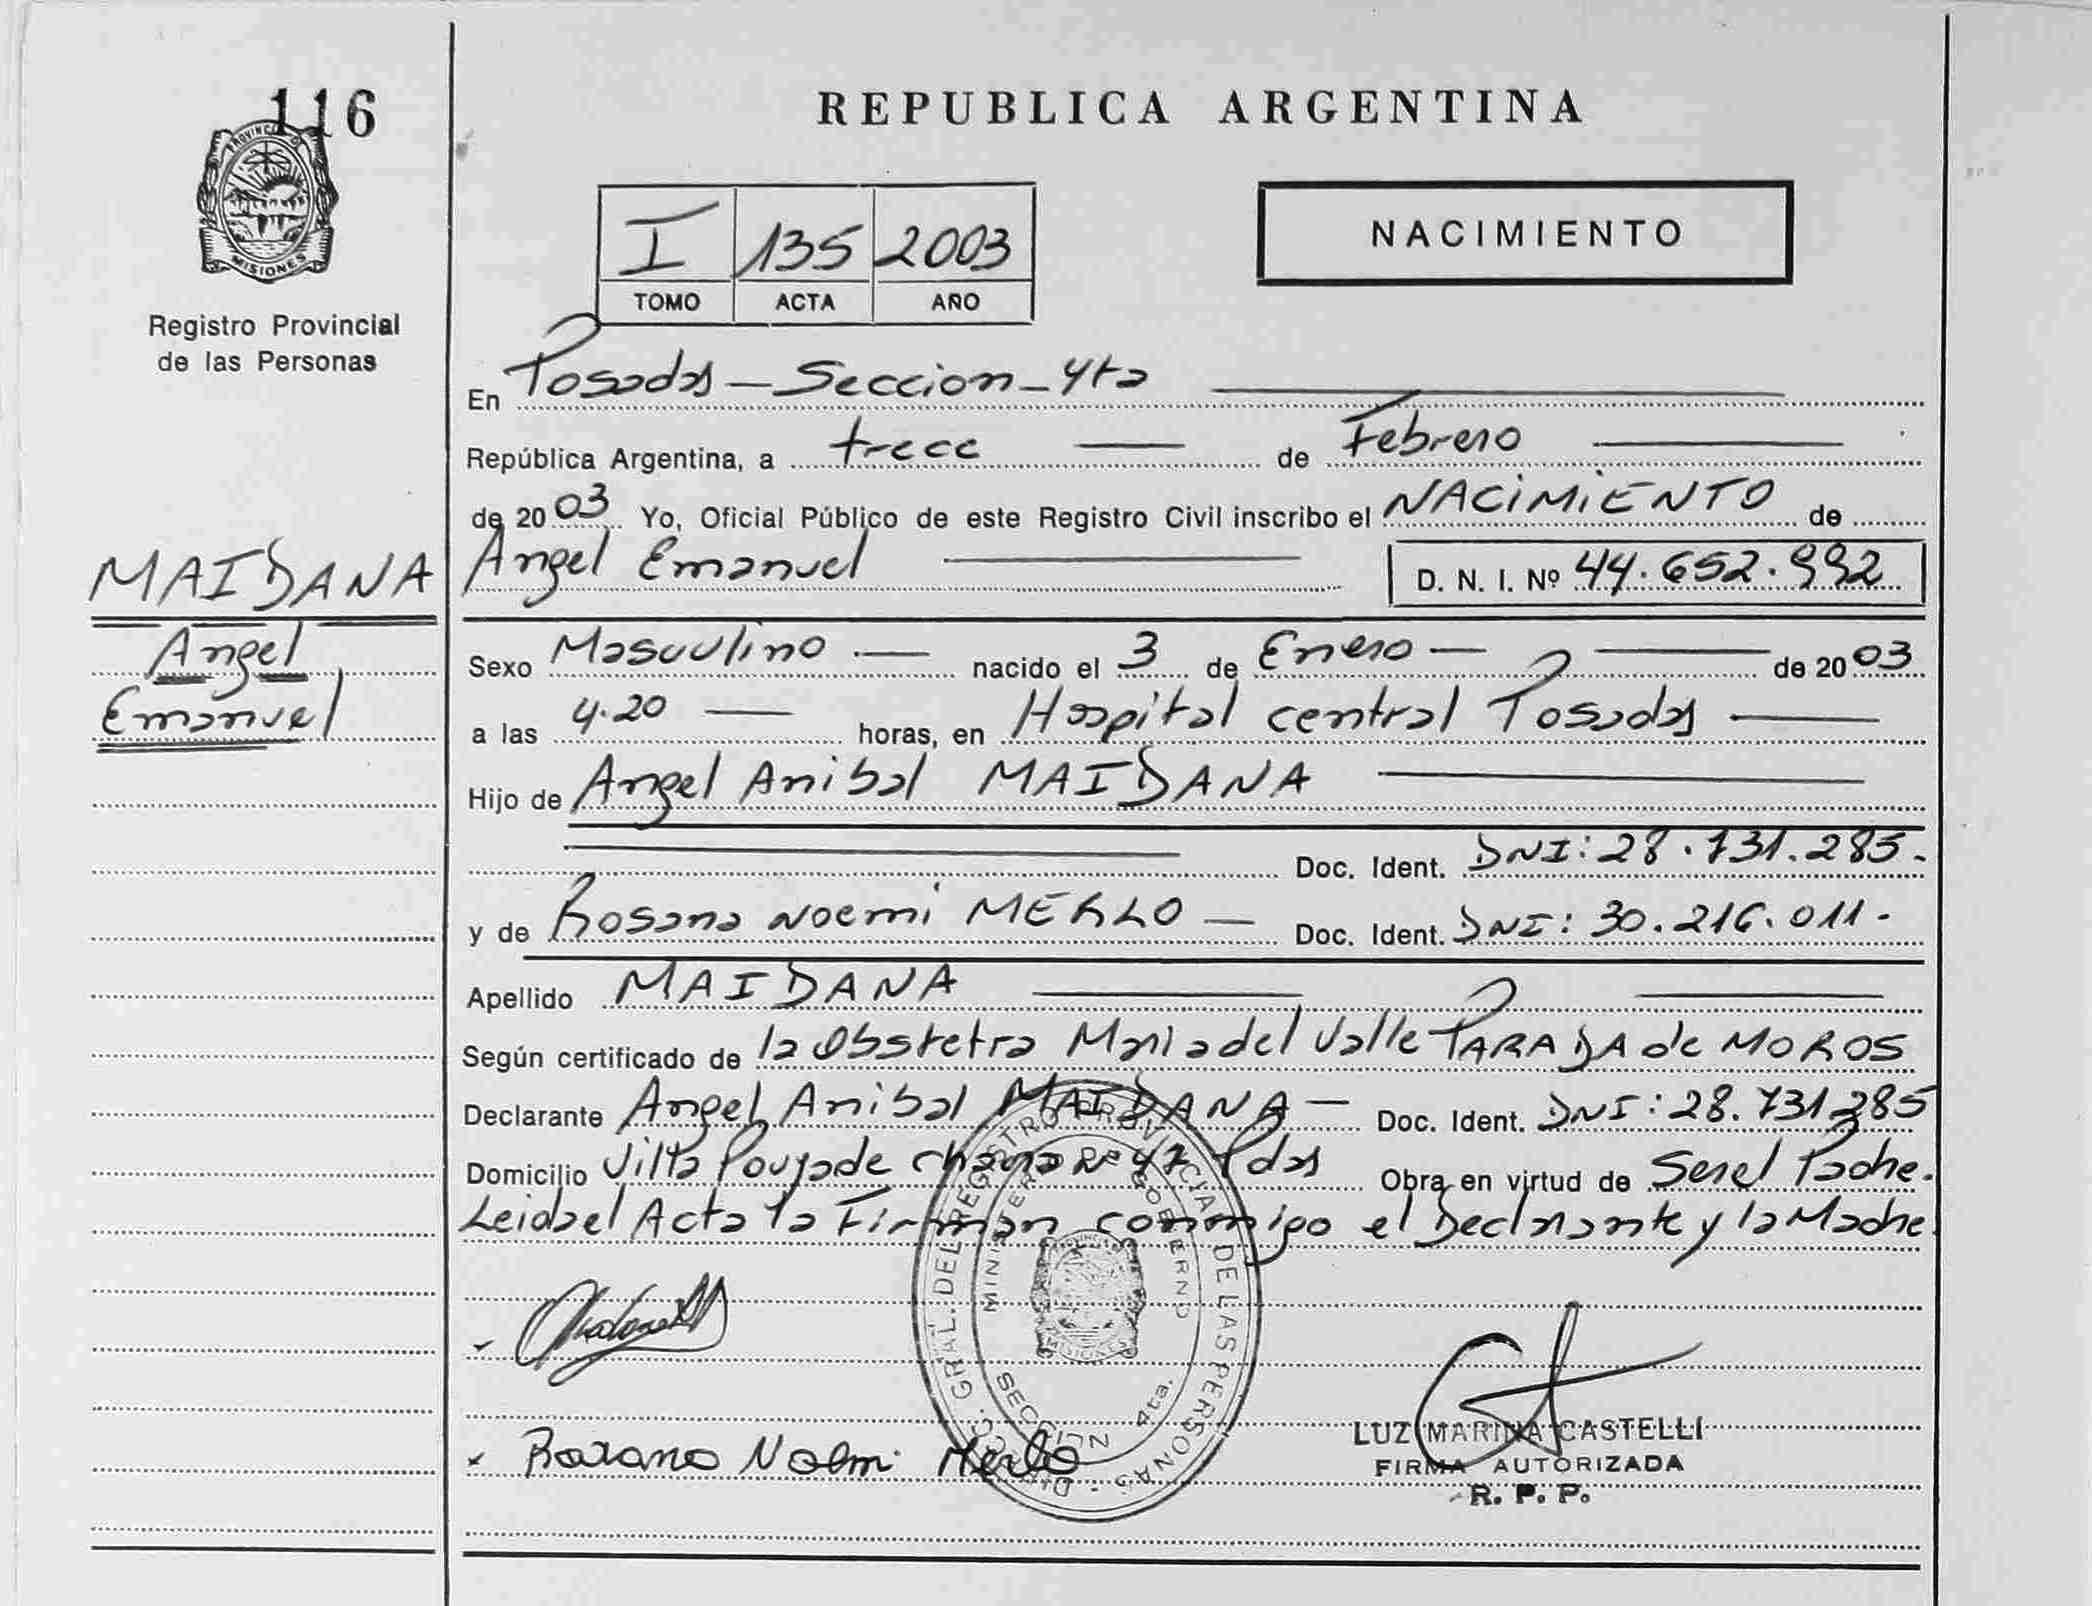 116
PROVINCIA
MISIONES
Registro Provincial
de las Personas
MAIDANA
Angel
Emanuel
REPUBLICA ARGENTINA
I 135 2003
TOMO ACTA AÑO
NACIMIENTO
En Posadas - Seccion - 4ta
República Argentina, a trece de Febrero
de 2003 Yo, Oficial Público de este Registro Civil inscribo el NACIMIENTO de
Angel Emanuel D. N. I. Nº 44.652.992
Sexo Masculino nacido el 3 de Enero de 2003
a las 4.20 horas, en Hospital central Posadas
Hijo de Angel Anibal MAIDANA
Doc. Ident. DNI: 28.731.285.
y de Rosana Noemi MERLO Doc. Ident. DNI: 30.216.011.
Apellido MAIDANA
Según certificado de la Obstetra Maria del Valle PARADA de MOROS
Declarante Angel Anibal MAIDANA Doc. Ident. DNI: 28.731.285
Domicilio Villa Poujade chacra Nº 47 Pdas Obra en virtud de Ser el Padre.
Leida el Acta la Firman conmigo el Declarante y la Madre
DIRECC. GRAL. DEL REGISTRO PROVINCIAL DE LAS PERSONAS
MINISTERIO DE GOBIERNO
MISIONES
SECCION 4ta.
Rosana Noemi Merlo
LUZ MARINA CASTELLI
FIRMA AUTORIZADA
R. P. P.